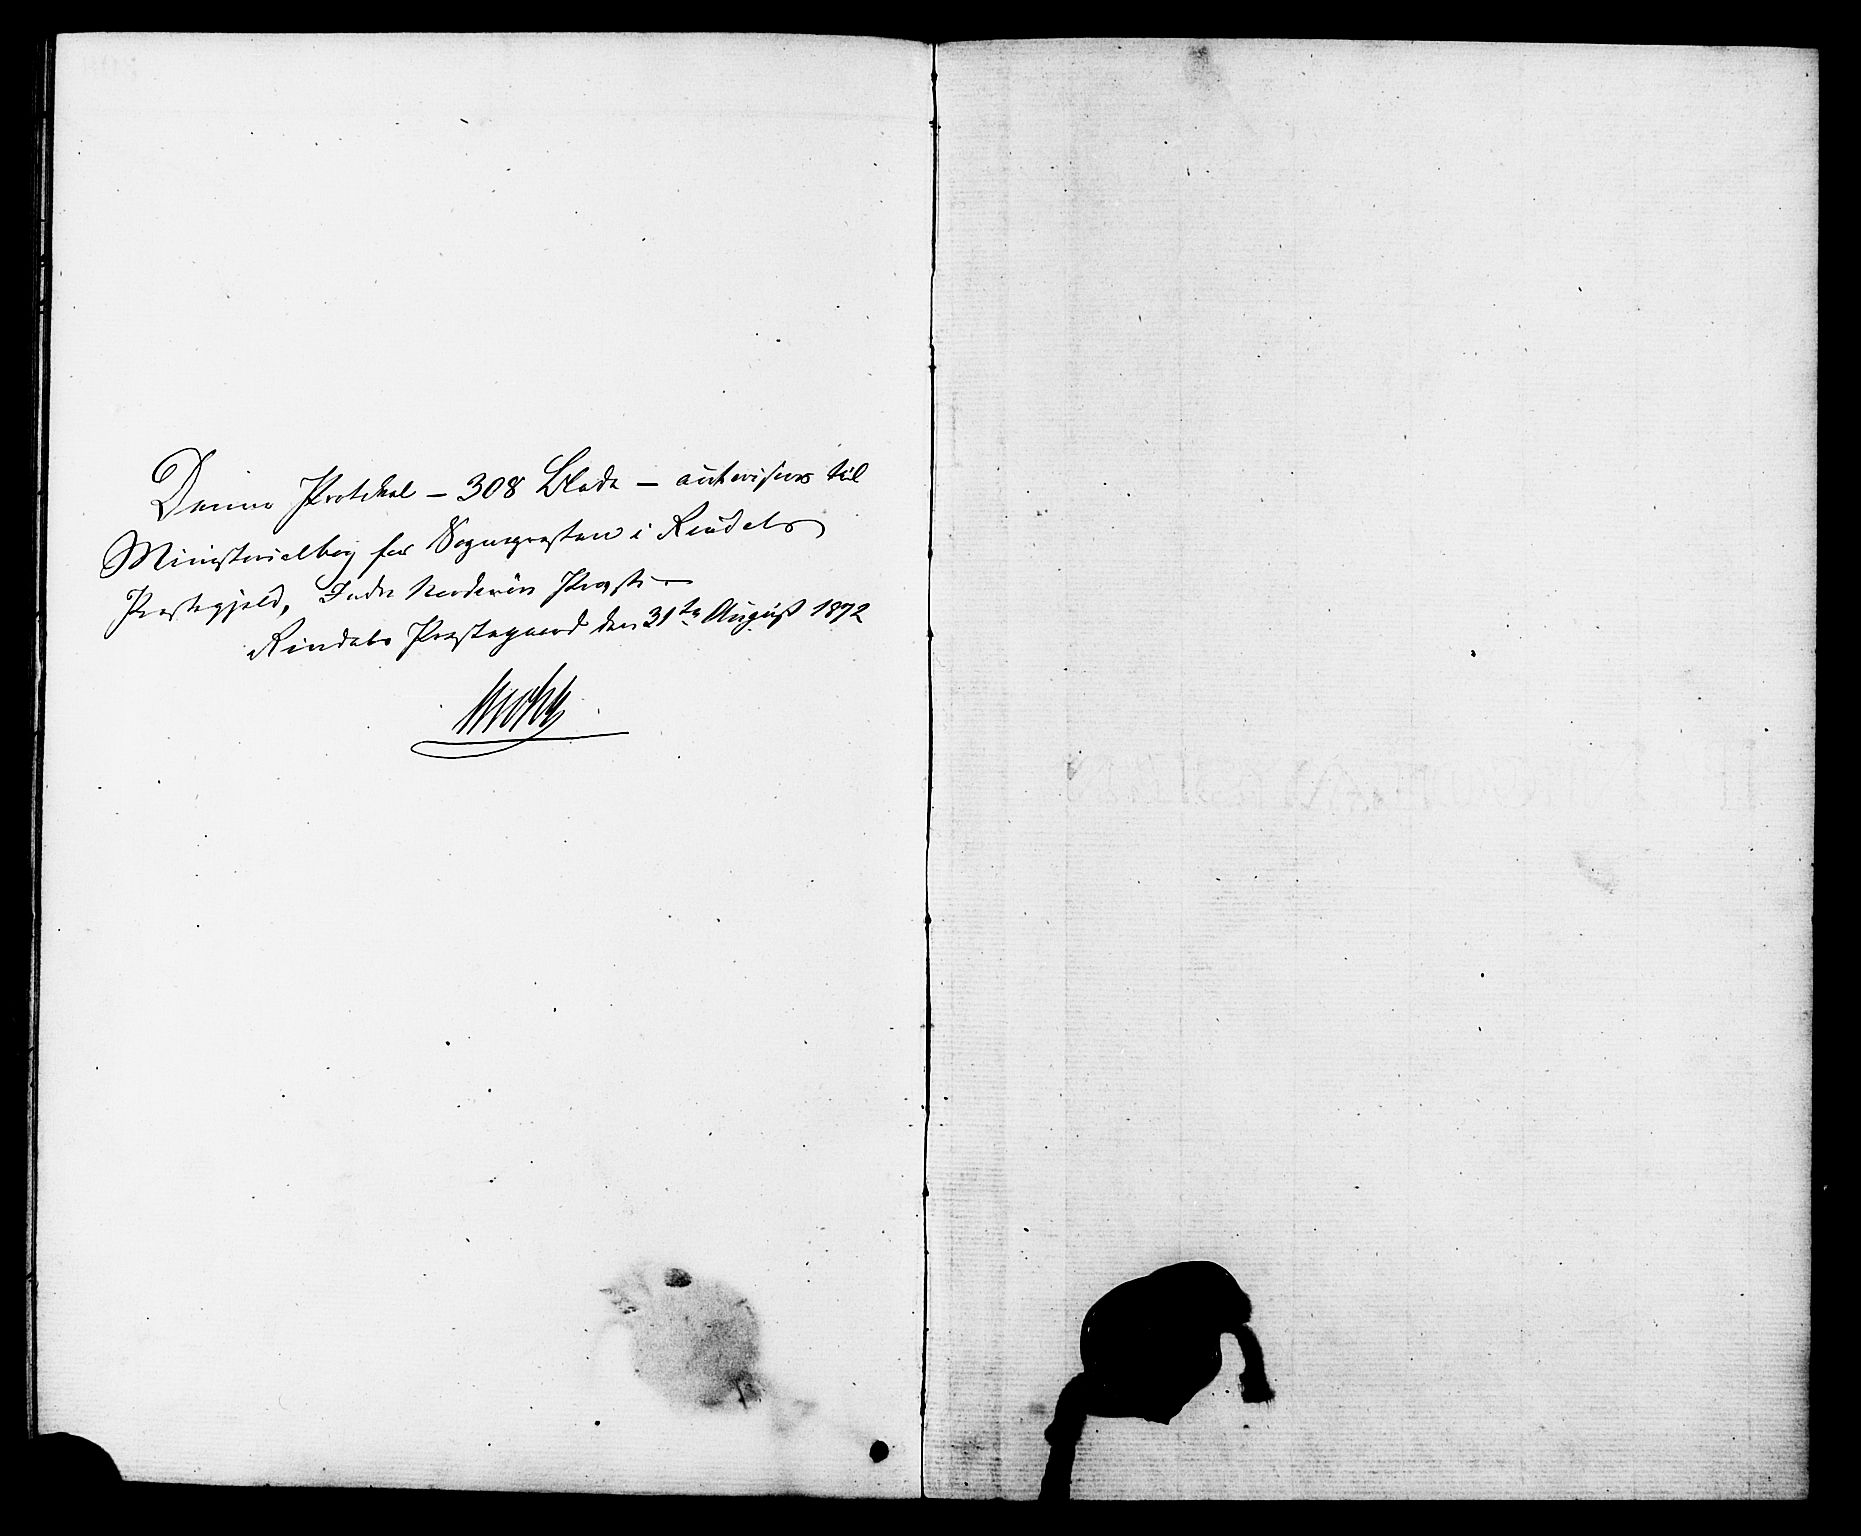 Denne Protokol – 308 Blade – autoriseres til
Ministerialbog for Sognepræsten i Rindals
Præstegjeld, Indre Nordmøre Provsti –
Rindals Præstegaard den 31te August 1872